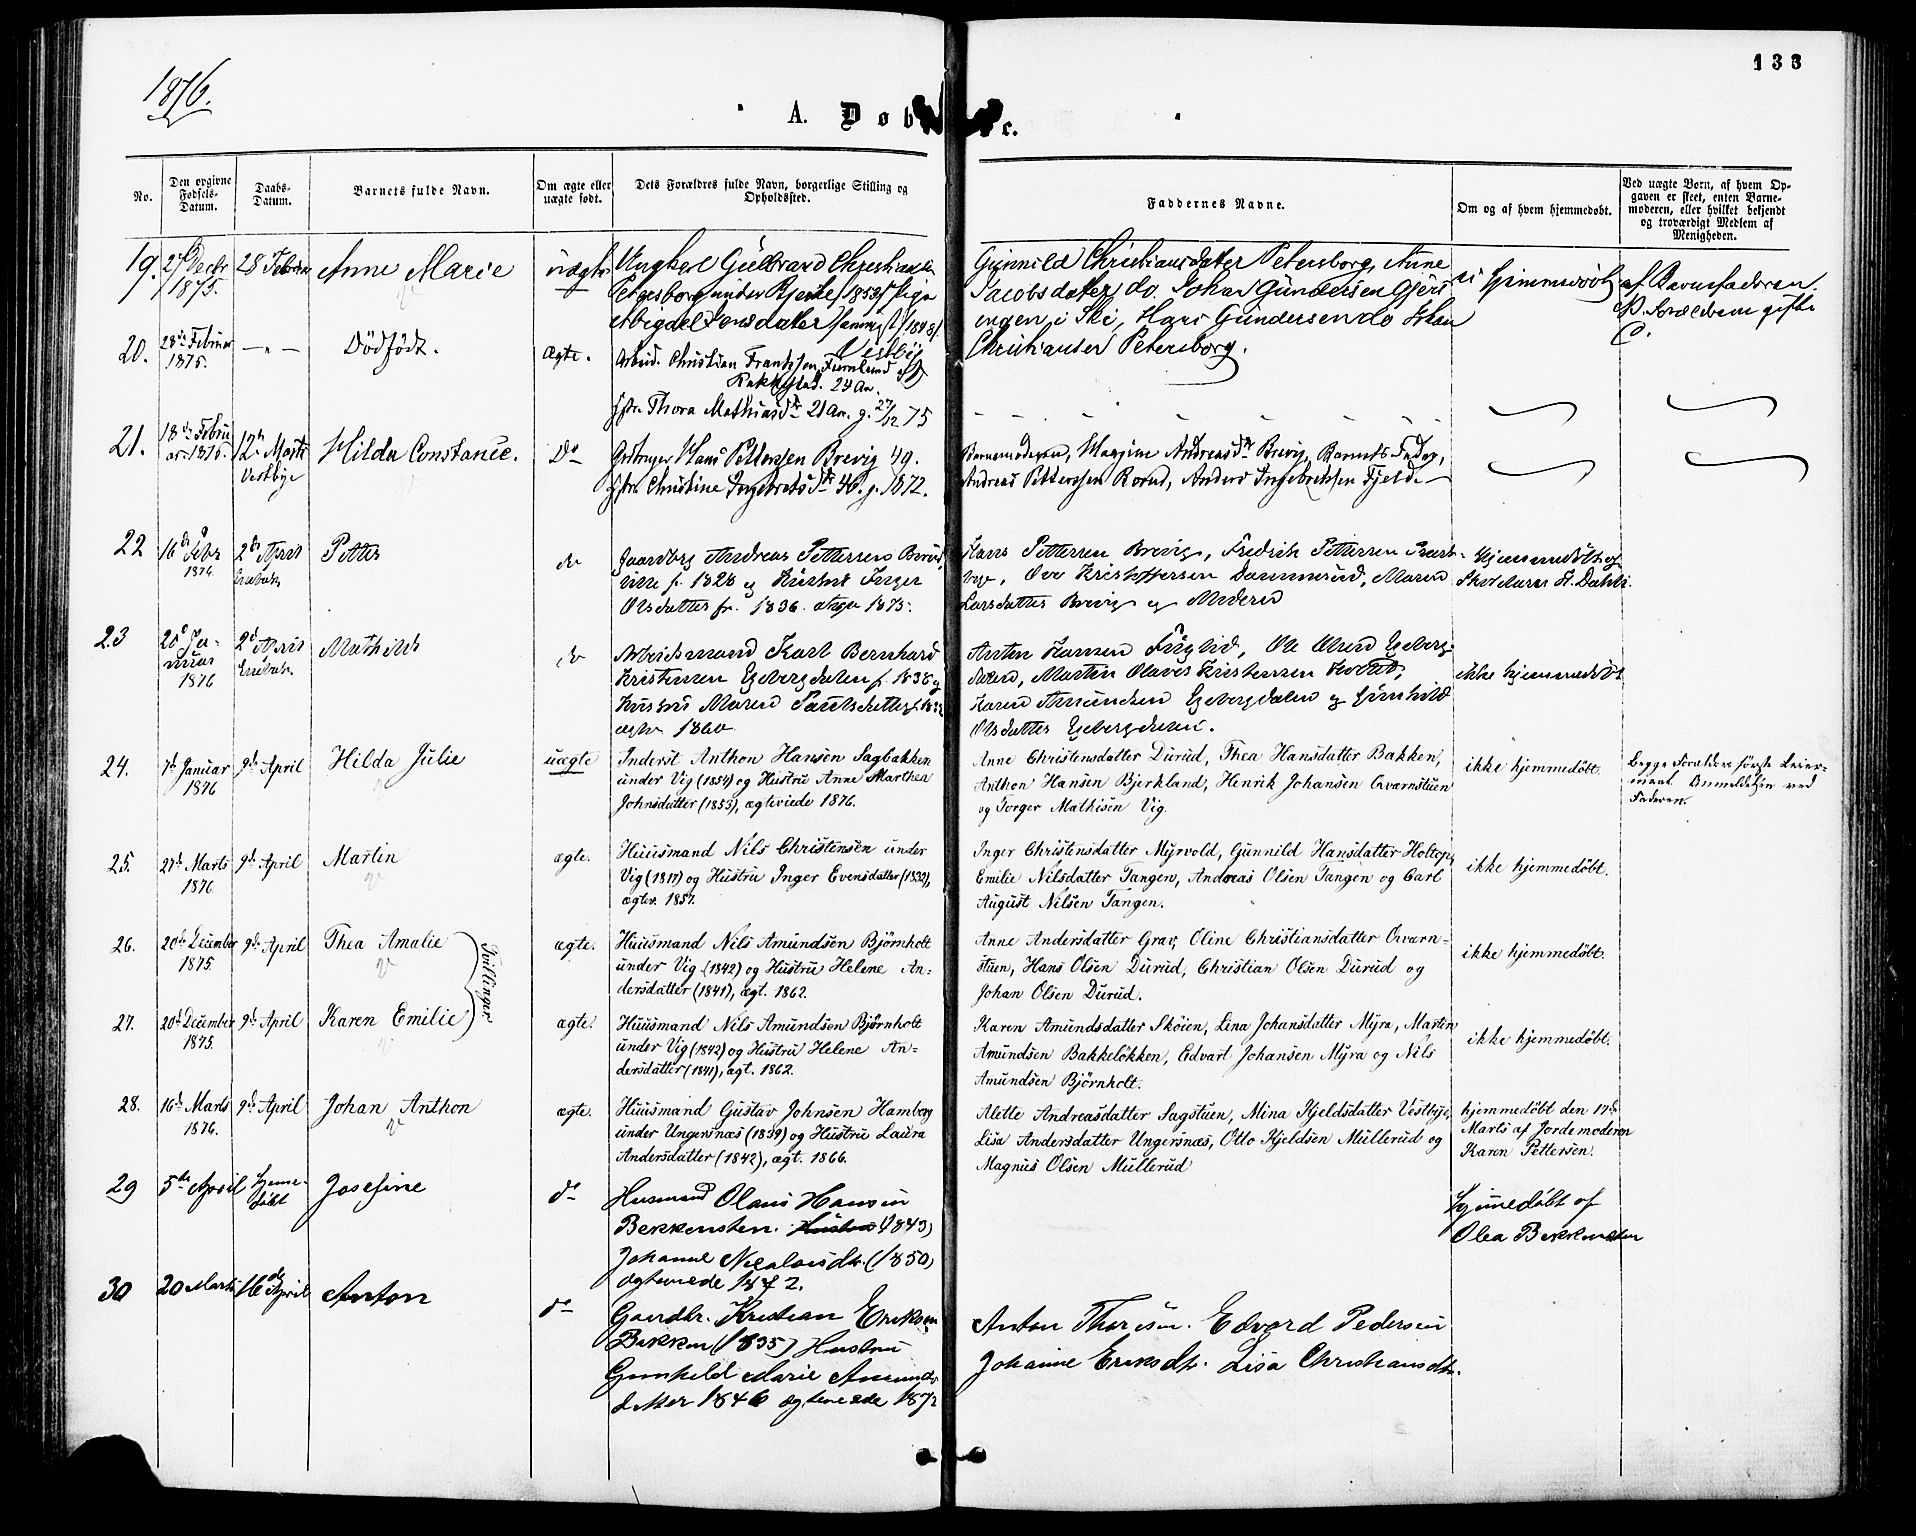 1876.
133
A. Døb e.
No.
Den opgivne Fødsels-Datum.
Daabs-Datum.
Barnets fulde Navn.
Om ægte eller uægte født.
Dets Forældres fulde Navn, borgerlige Stilling og Opholdssted.
Faddernes Navne.
Om og af hvem hjemmedøbt.
Ved uægte Børn, af hvem Opgaven er skeet, enten Barnemoderen, eller hvilket bekjendt og troværdigt Medlem af Menigheden.
19.
27 Decbr
1875.
28 Februar
Anne Marie
uægte
Ungkarl Gulbrand Christiansen
Petersborg under Bjerke (1853) Pige
Abigael Jensdatter sammest (1848)
Vestby
Gunnild Christiansdater Petersborg, Anne
Jacobsdater do. Johan Gundersen Gjers
engen i Ski, Hans Gundersen do Johan
Christiansen Petersborg.
ei hjemmedøbt
af Barnefaderen.
Forældrene gifte
20.
28de Februar
1875.
— " —
Dödfödt.
Ægte.
Arbeid. Christian Frantzsen
24 Aar.
Hstr. Thora Mathiasdtr 21 Aar. g. 27/12 75
21.
18de Febru
ar 1876.
12te Marts
Vestbye
Hilda Constance.
Do
Grdbruger Hans Pettersen Brevig 49.
Hstr. Christine Ingebretsdtr 36. g. 1872.
Barnemoderen, Maxine Andreasdtr Brevig, Barnets Fader,
Andreas Petterssen Rørud, Anders Ingebretsen Fjeld.
22
16de Febr
1876
2den April
Petter
do
Gaardbrg Andreas Pettersen
f. 1828 og Kustru Inger
Olsdatter fr. 1836. ægte 1875.
Hans Pettersen Brevig, Fredrik Pettersen
Ove Kristoffersen Dammerud, Maren
Larsdatter Brevig og Moderen
Hjemmedøbt af
23
20de Ja-
nuar
1876
2den April
Mathilde
do
Arbeidsmand Karl Bernhard
Kristensen Egebergdalen f. 1838 og
Kustru Maren Paulsdatter
ægte 1860
Anton Hansen Fuglid, Ole Olsen Egeberg-
dalen, Martin Olaves Kristensen
Karen Amundsen Egebergdalen og Gunhild
Olsdatter Egebergdalen.
ikke hjemmedøbt
24.
7de Januar
1876
9de April
Hilda Julie
uægte
Inderst Anthon Hansen Sagbakken
under Vig (1854) og Hustru Anne Marthea
Johnsdatter (1853), ægteviede 1876.
Anne Christensdatter Durud, Thea Hansdatter Bakken,
Anthon Hansen Bjerkland, Henrik Johansen Qværnstuen
og Torger Mathisen Vig.
ikke hjemmedøbt.
Begge Forældres første Leier-
maal. Anmeldelsen ved
Faderen.
25.
27de Marts
1876
9de April
Martin
ægte.
Huusmand Nils Christensen under
Vig (1817) og Hustru Inger Evensdatter (1832),
ægtev. 1857.
Inger Christensdatter Myrvold, Gunnild Hansdatter Holtop,
Emilie Nilsdatter Tangen, Andreas Olsen Tangen og Carl
August Nilsen Tangen.
ikke hjemmedøbt.
26.
20de December
1875.
9de April
Thea Amalie
Tvillinger
ægte.
Huusmand Nils Amundsen Björnholt
under Vig (1842) og Hustru Helene An-
dersdatter (1841), ægt. 1862.
Anne Andersdatter Grav, Oline Christiansdatter Qværn-
stuen, Hans Olsen Durud, Christian Olsen Durud og
Johan Olsen Durud.
ikke hjemmedøbt.
27.
20de December
1875.
9de April
Karen Emilie
ægte.
Huusmand Nils Amundsen Björnholt
under Vig (1842) og Hustru Helene An-
dersdatter (1841), ægt. 1862.
Karen Amundsdatter Skoien, Lina Johansdatter Myra, Martin
Amundsen Bakkelökken, Edvart Johansen Myra og Nils
Amundsen Björnholt.
ikke hjemmedøbt.
28.
16de Marts
1876.
9de April
Johan Anthon
ægte.
Huusmand Gustav Johnsen Hamborg
under Ungersnæs (1839) og Hustru Laura
Andersdatter (1842), ægt. 1866.
Alette Andreasdatter Sagstuen, Mina Kjeldsdatter Vestbye,
Lisa Andersdatter Ungersnæs, Otto Kjeldsen Mullerud og
Magnus Olsen Mullerud
hjemmedøbt den 17de
Marts af Jordemoderen
Karen Pettersen.
29
5te April
Hjemme-
døbt
Josefine
do
Husmand Olaus Hansen
Bekkensten. Hustru (1843)
Johanne Nicolaisdtr. (1850)
ægteviede 1872.
Hjemmedøbt af
Olea Bekkensten
30
20 Marts
16de April
Anton
do
Gaardbr. Kristian Eriksen
Bekken (1835) Hustru
Gunhild Marie Amunds
datter 1846 ægteviede 1872
Anton Thoresen. Edvard Pedersen
Johanne Eriksdtr. Lisa Christiansdtr.